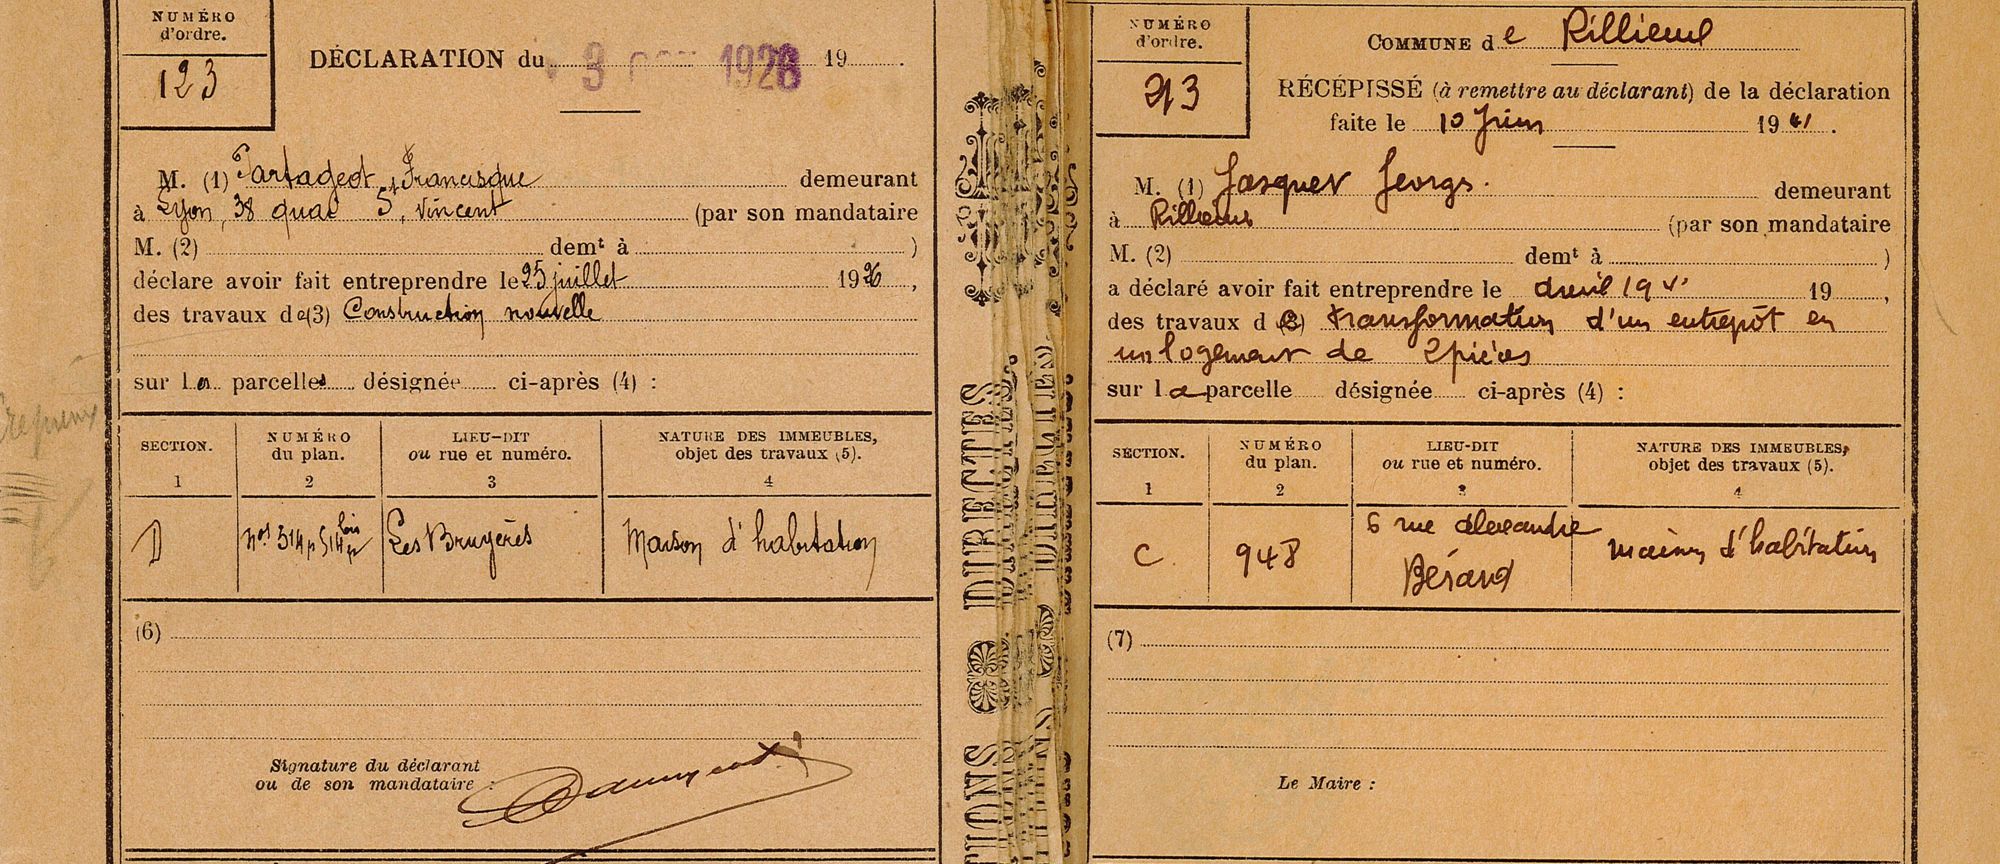 NUMÉRO
d'ordre.
123
DÉCLARATION du 3 OCT 1926 19
M. (1) Partageot Francisque demeurant
à Lyon, 38 quai St Vincent (par son mandataire
M. (2) demt à )
déclare avoir fait entreprendre le 25 juillet 1926,
des travaux de (3) Construction nouvelle
sur les parcelles désignée ci-après (4) :
SECTION. NUMÉRO du plan. LIEU-DIT ou rue et numéro. NATURE DES IMMEUBLES, objet des travaux (5).
1 2 3 4
D nos 514p 514bis p Les Bruyères Maison d'habitation
(6)
Signature du déclarant
ou de son mandataire :
CONTRIBUTIONS DIRECTES
NUMÉRO
d'ordre.
213
COMMUNE de Rillieux
RÉCÉPISSÉ (à remettre au déclarant) de la déclaration
faite le 10 Juin 1941.
M. (1) Jasquet Georgs. demeurant
à Rillieux (par son mandataire
M. (2) demt à )
a déclaré avoir fait entreprendre le avril 1941 19 ,
des travaux d (3) transformation d'un entrepôt en
un logement de 2 pièces
sur la parcelle désignée ci-après (4) :
SECTION. NUMÉRO du plan. LIEU-DIT ou rue et numéro. NATURE DES IMMEUBLES, objet des travaux (5).
1 2 3 4
C 948 6 rue Alexandre Bérard maison d'habitation
(7)
Le Maire :